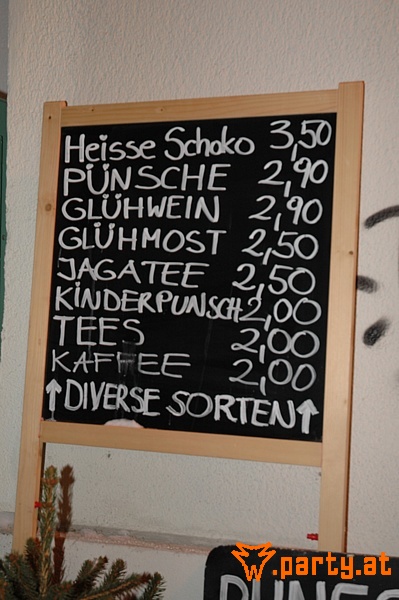 Heisse Schoko 3,50
PÜNSCHE 2,90
GLÜHWEIN 2,90
GLÜHMOST 2,50
JAGATEE 2,50
KINDERPUNSCH 2,00
TEES 2,00
KAFFEE 2,00
↑DIVERSE SORTEN↑
w.party.at